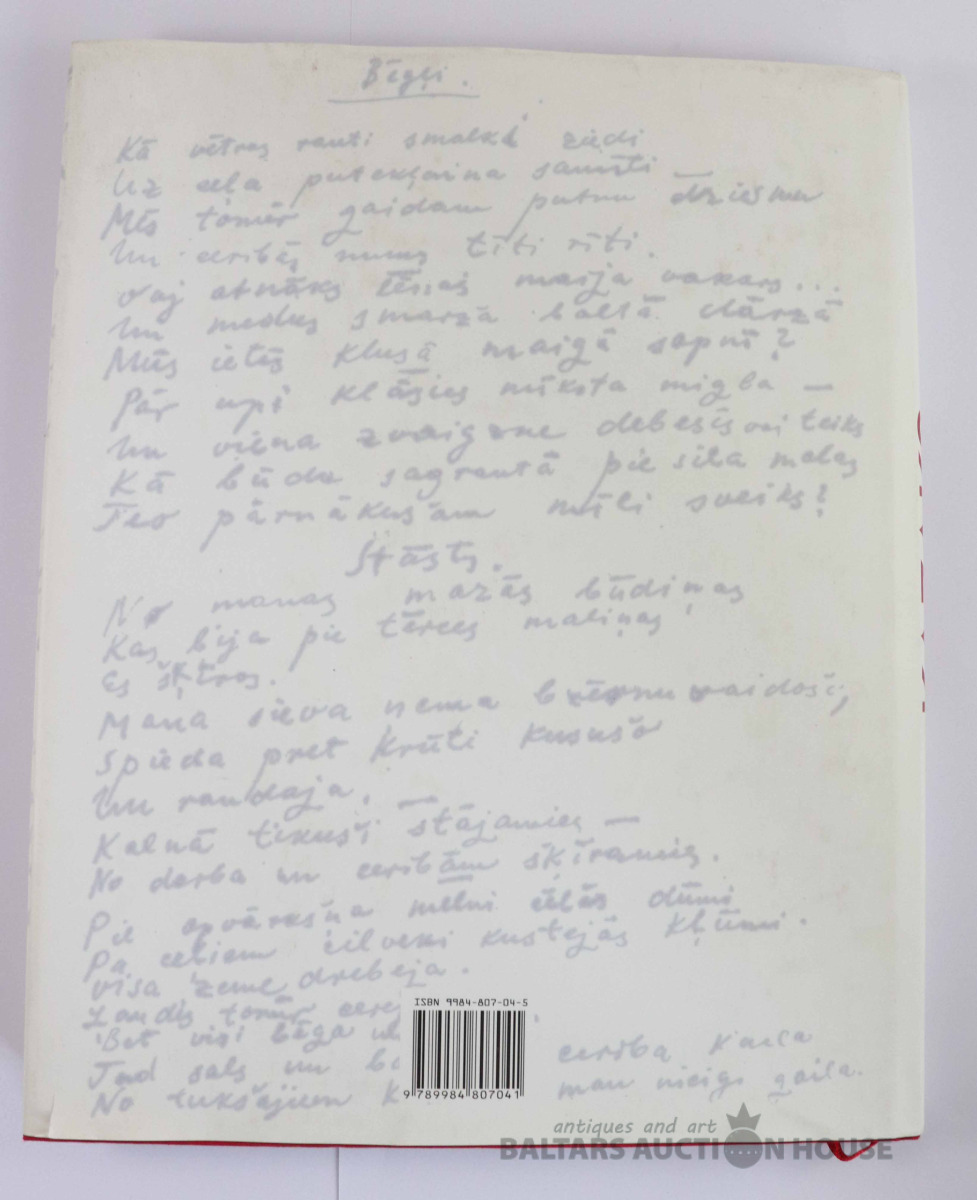 Bēgļi.
Kā vētras rauti smalkā ziedi
Uz ceļa putekļaina samīti —
Mēs tomēr gaidam putnu dziesmu
Un cerībās mums tīti rīti.
Vaj atnāks lēnais maija vakars...
Un medus smaržā baltā dārzā
Mūs ietīs klusā maigā sapnī?
Pār upi klāsies mīksta migla —
Un viena zvaigzne debesīs vai teiks
Kā būdu sagrautā pie sila malas
Teo pārnākušam mīļi sveiks?
Stāsts.
No manas mazās būdiņas
Kas bija pie tērces maliņas
Es šķīros.
Mana sieva ņema bērnu vaidošo,
Spieda pret krūti kususō
Un raudāja.
Kalnā tikuši stājamies —
No darba un cerībām šķiramies.
Pie apvāršņa melni cēlās dūmi
Pa ceļiem cilveki kustejās kļūmi.
Visa zeme drebeja.
Ļaudis tomēr cere
Bet visi bēga un
Tad sals un ba cerība kauca
No tukšajiem k man nicigi gaila.
ISBN 9984-807-04-5
9 789984 807041
antiques and art
BALTARS AUCTION HOUSE